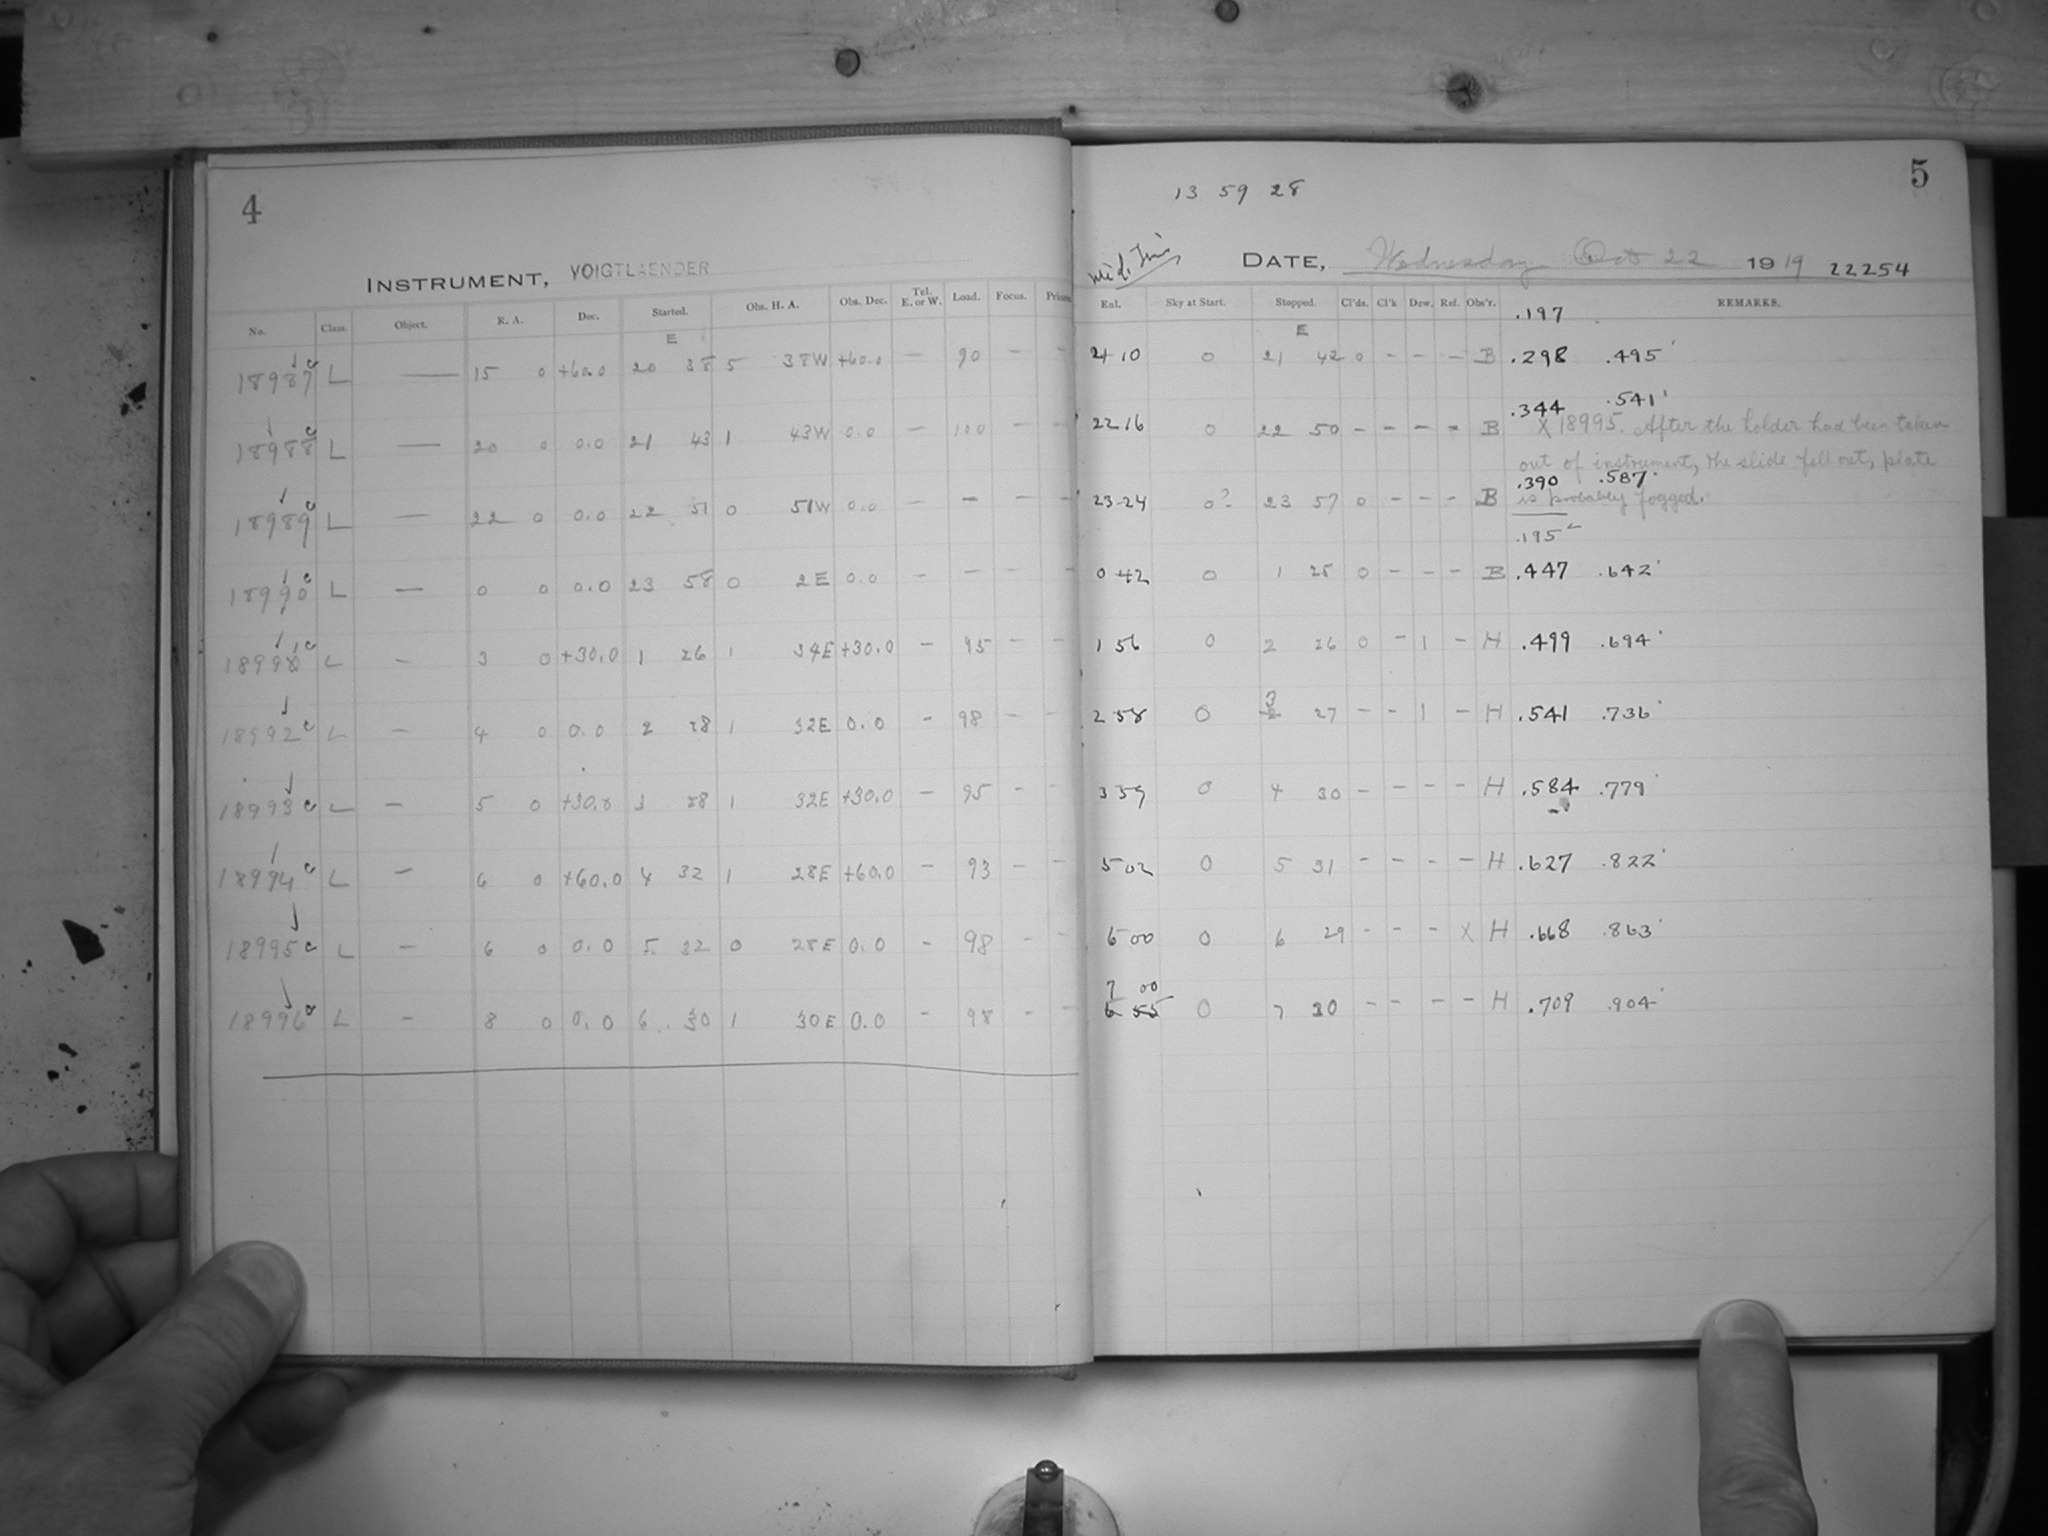 4
INSTRUMENT, VOIGTLAENDER
No. Class. Object. R. A. Dec. Started. Obs. H. A. Obs. Dec. Tel. E. or W. Load. Focus. Prism
E
18987 c L — 15 0 +60.0 20 38 5 38W +60.0 — 90 — —
18988 c L — 20 0 0.0 21 43 1 43W 0.0 — 100 — —
18989 c L — 22 0 0.0 22 51 0 51W 0.0 — — — —
18990 c L — 0 0 0.0 23 58 0 2E 0.0 — — — —
18991 c L — 3 0 +30.0 1 26 1 34E +30.0 — 95 — —
18992 c L — 4 0 0.0 2 28 1 32E 0.0 — 98 — —
18993 c L — 5 0 +30.0 3 28 1 32E +30.0 — 95 — —
18994 c L — 6 0 +60.0 4 32 1 28E +60.0 — 93 — —
18995 c L — 6 0 0.0 5 32 0 28E 0.0 — 98 — —
18996 c L — 8 0 0.0 6 30 1 30E 0.0 — 98 — —
5
13 59 28
DATE, Wednesday Oct 22 1919 22254
Sky at Start. Stopped. Cl'ds. Cl'k Dew. Ref. Obs'r. REMARKS.
E .197
21 10 0 21 42 0 - - - B .298 .495
.344 .541
22 16 0 22 50 - - - - B X 18995. After the holder had been taken
out of instrument, the slide fell out, plate
.390 .587
23 24 0? 23 57 0 - - - B is probably fogged.
.195
0 42 0 1 25 0 - - - B .447 .642
1 56 0 2 26 0 - 1 - H .499 .694
3
2 58 0 2 27 - - 1 - H .541 .736
3 59 0 4 30 - - - - H .584 .779
5 02 0 5 31 - - - - H .627 .822
6 00 0 6 29 - - - X H .668 .863
7 00
6 55 0 7 30 - - - - H .709 .904